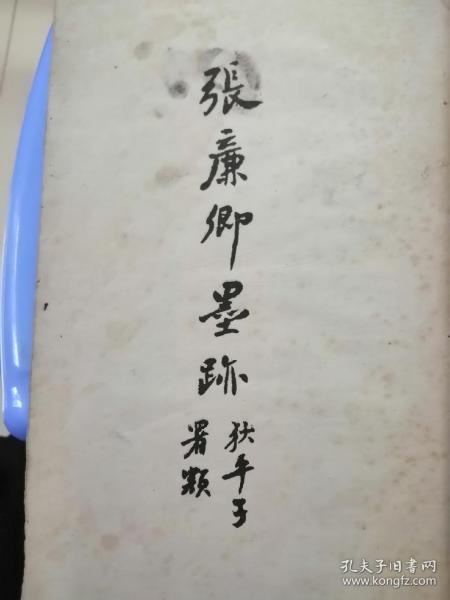 張廉卿墨跡
狄平子
署題
孔夫子旧书网
www.kongfz.com